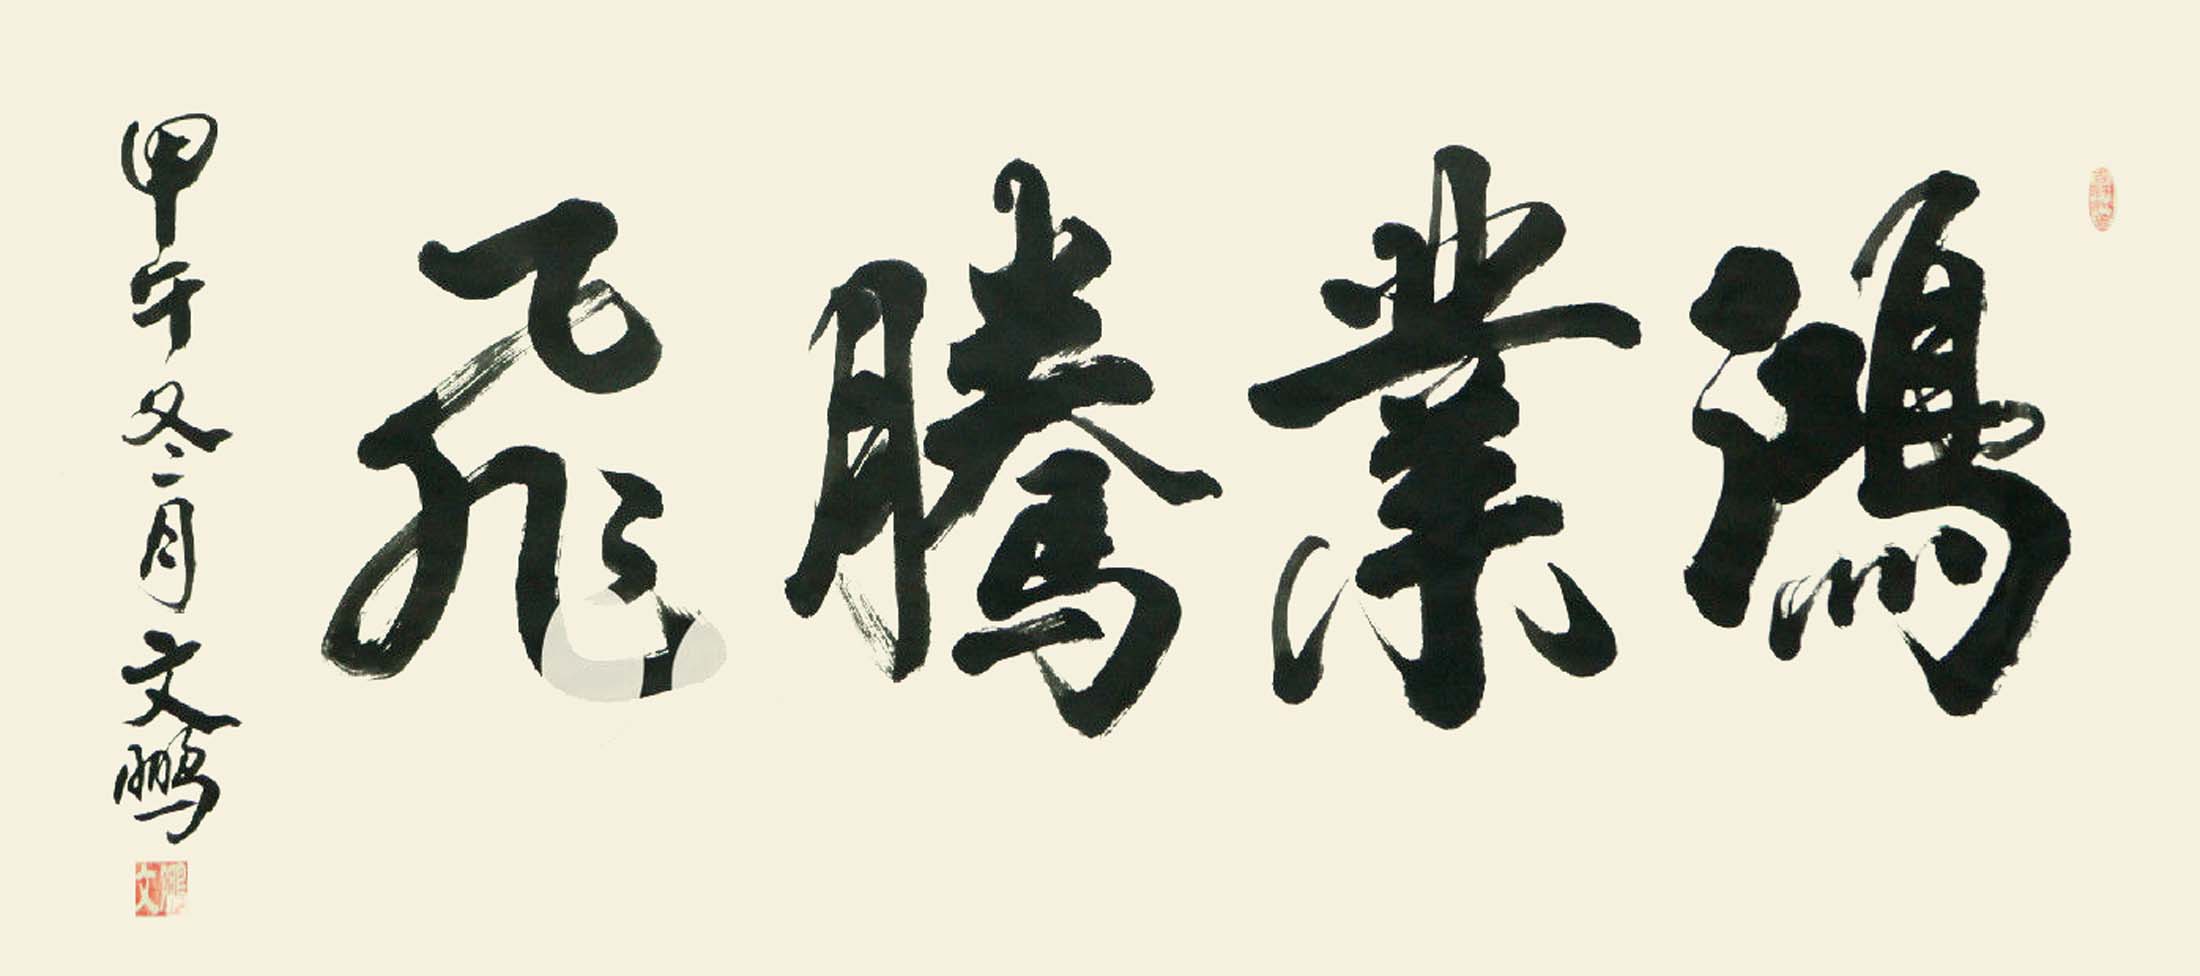 鴻業騰飛
甲午冬月文鹏
文鵬